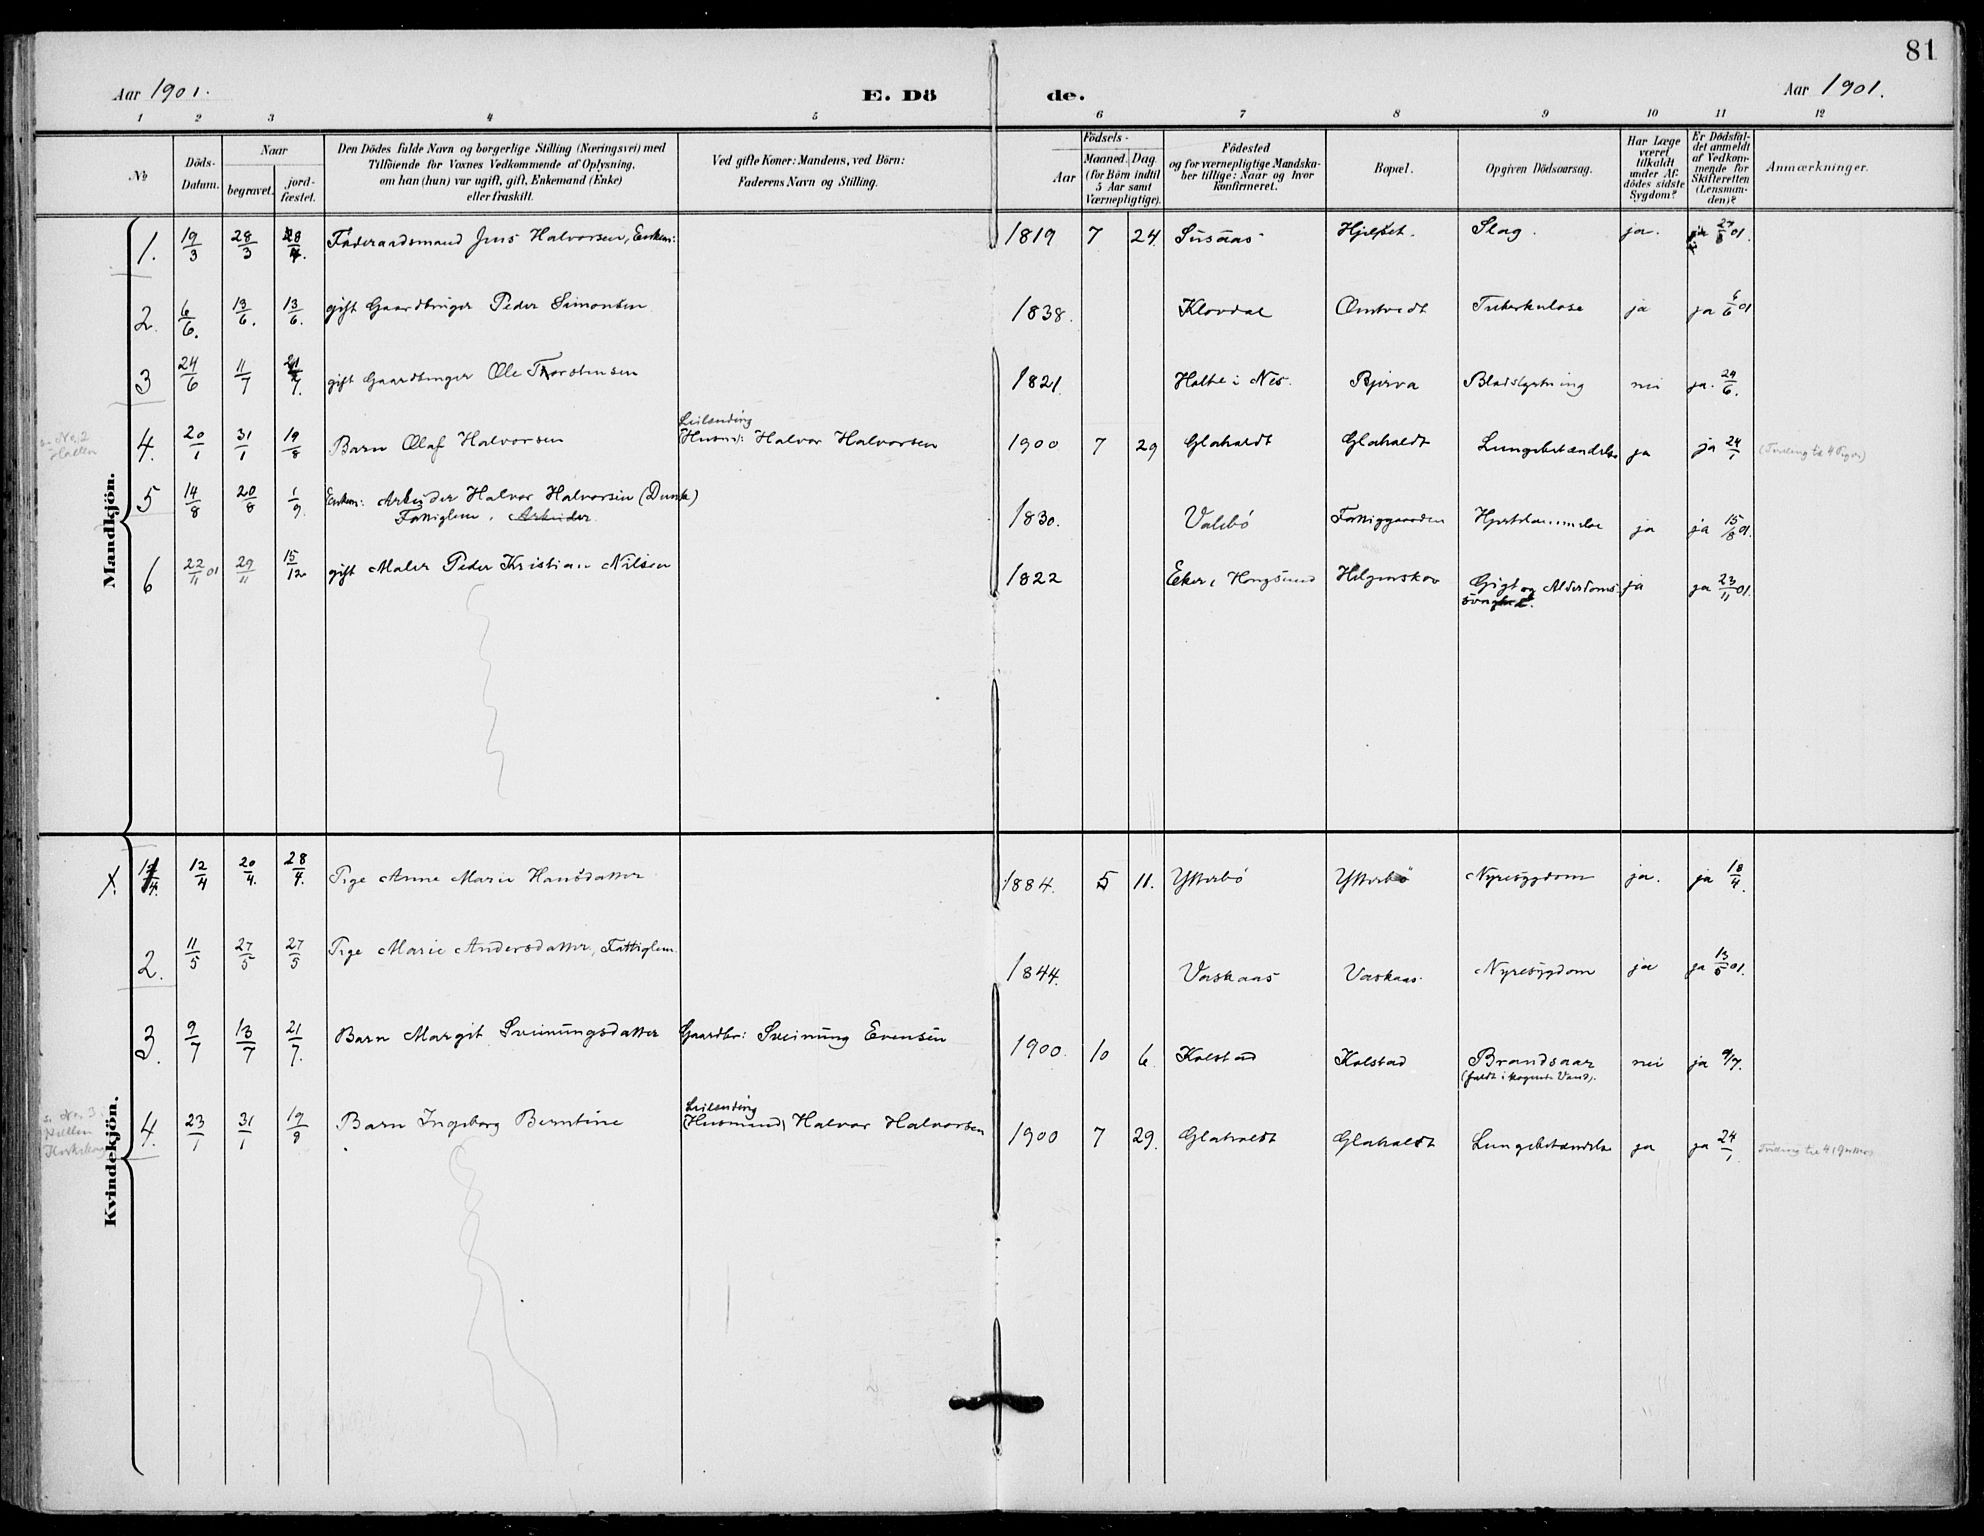 81
Aar 1901.
E. Dö de.
Aar 1901.
1 2 3 4 5 6 7 8 9 10 11 12
No
Döds-Datum.
Naar
begravet.
jord-fæstet.
Den Dödes fulde Navn og borgerlige Stilling (Næringsvei) med
Tilföiende for Voxnes Vedkommende af Oplysning,
om han (hun) var ugift, gift, Enkemand (Enke)
eller fraskilt.
Ved gifte Koner: Mandens, ved Börn:
Faderens Navn og Stilling.
Födsels-
Aar
Maaned. Dag.
(for Börn indtil
5 Aar samt
Værnepligtige).
Födested
og for værnepligtige Mandska-
ber tillige: Naar og hvor
konfirmeret.
Bopæl.
Opgiven Dödsaarsag.
Har Læge
været
tilkaldt
under Af-
dödes sidste
Sygdom?
Er Dödsfal-
det anmeldt
af Vedkom-
mende for
Skifteretten
(Lensman-
den)?
Anmærkninger.
Mandkjön.
1. 19/3 28/3 28/4 Föderaadsmand Jens Halvorsen, Enkem: 1819 7 24 Susaas Hjelset. Slag. ja. ja 27/3 01.
2. 6/6. 13/6. 13/6. gift Gaardbruger Peder Simonsen 1838. Klovdal Omtvedt Tuberkulose ja ja 6/6 01
3 24/6 11/7 21/7. gift Gaardbruger Ole Thorstensen 1821. Holte i Nes. Bjerva Blodstyrtning nei ja. 29/6.
No. 2
4. 20/1 31/1 19/8 Barn Olaf Halvorsen Leilending (Husm): Halvor Halvorsen 1900 7 29 Glahaldt Glahaldt Lungebetændelse ja ja 24/1 (Tvilling til 4 Piger)
5 14/8 20/8 1/9. Enkem: Arbeider Halvor Halvorsen (Dunk)
Fattiglem. Arbeider. 1830. Valebö Fattiggaarden Hjertelammelse ja ja 15/8 01.
6 22/11 01 29/11 15/12 gift Maler Peder Kristian Nilsen 1822 Eker, Hougsund Helgenskov Gigt og Alderdoms-
svaghed. ja ja 23/11 01.
Kvindekjön.
X. 1/4. 12/4 20/4. 28/4. Pige Anne Marie Hansdatter 1884. 5 11. Ytterbö Ytterbö Nyresygdom ja. ja 18/4.
2. 11/5 27/5 27/5 Pige Marie Andersdatter, Fattiglem. 1844. Vaskaas Vaskaas. Nyresygdom ja ja 13/5 01.
3. 9/7 13/7 21/7. Barn Margit Sveinungsdatter Gaardbr: Sveinung Evensen 1900. 10 6. Kolstad Kolstad Brandsaar
(faldt i kogende Vand). nei ja 9/7.
No. 3
4. 23/1 31/1 19/8 Barn Ingeborg Berntine Leilending (Husmand) Halvor Halvorsen 1900 7 29. Glahaldt Glahaldt Lungebetændelse ja ja 24/1. Tvilling til 4 i Gutter